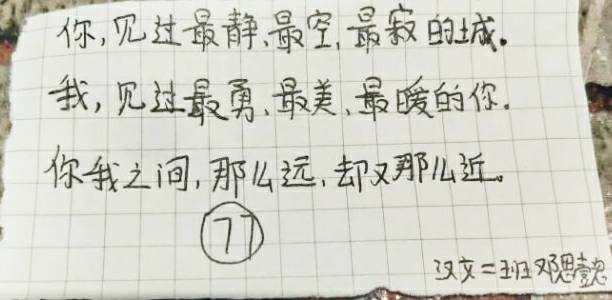 你,见过最静、最空、最寂的城.
我,见过最勇、最美、最暖的你.
你我之间,那么远,却又那么近。
77
汉文二班邓思懿